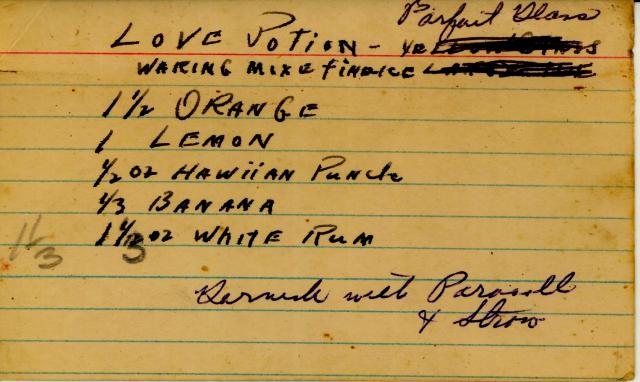 Parfait Glass
LOVE POTION -
WARING MIX & FINE ICE
1 1/2 ORANGE
1 LEMON
1/2 OZ HAWIIAN PUNCH
1/3 BANANA
1 1/2 OZ WHITE RUM
1 1/3
3
Garnish with Parasoll
& Straw